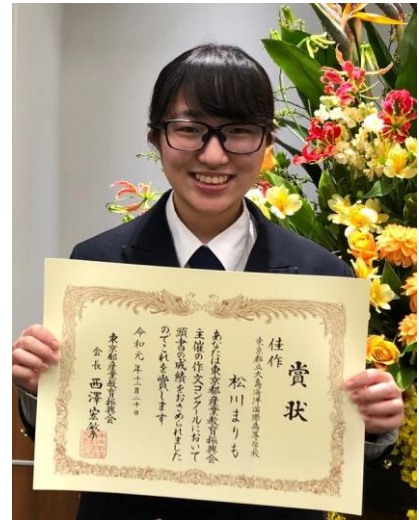 賞状
佳作
東京都立大島海洋国際高等学校
松川まりも
あなたは東京都産業教育振興会
主催の作文コンクールにおいて
頭書の成績をおさめられました
のでこれを賞します
令和元年十二月二十日
東京都産業教育振興会
会長 西澤宏繁